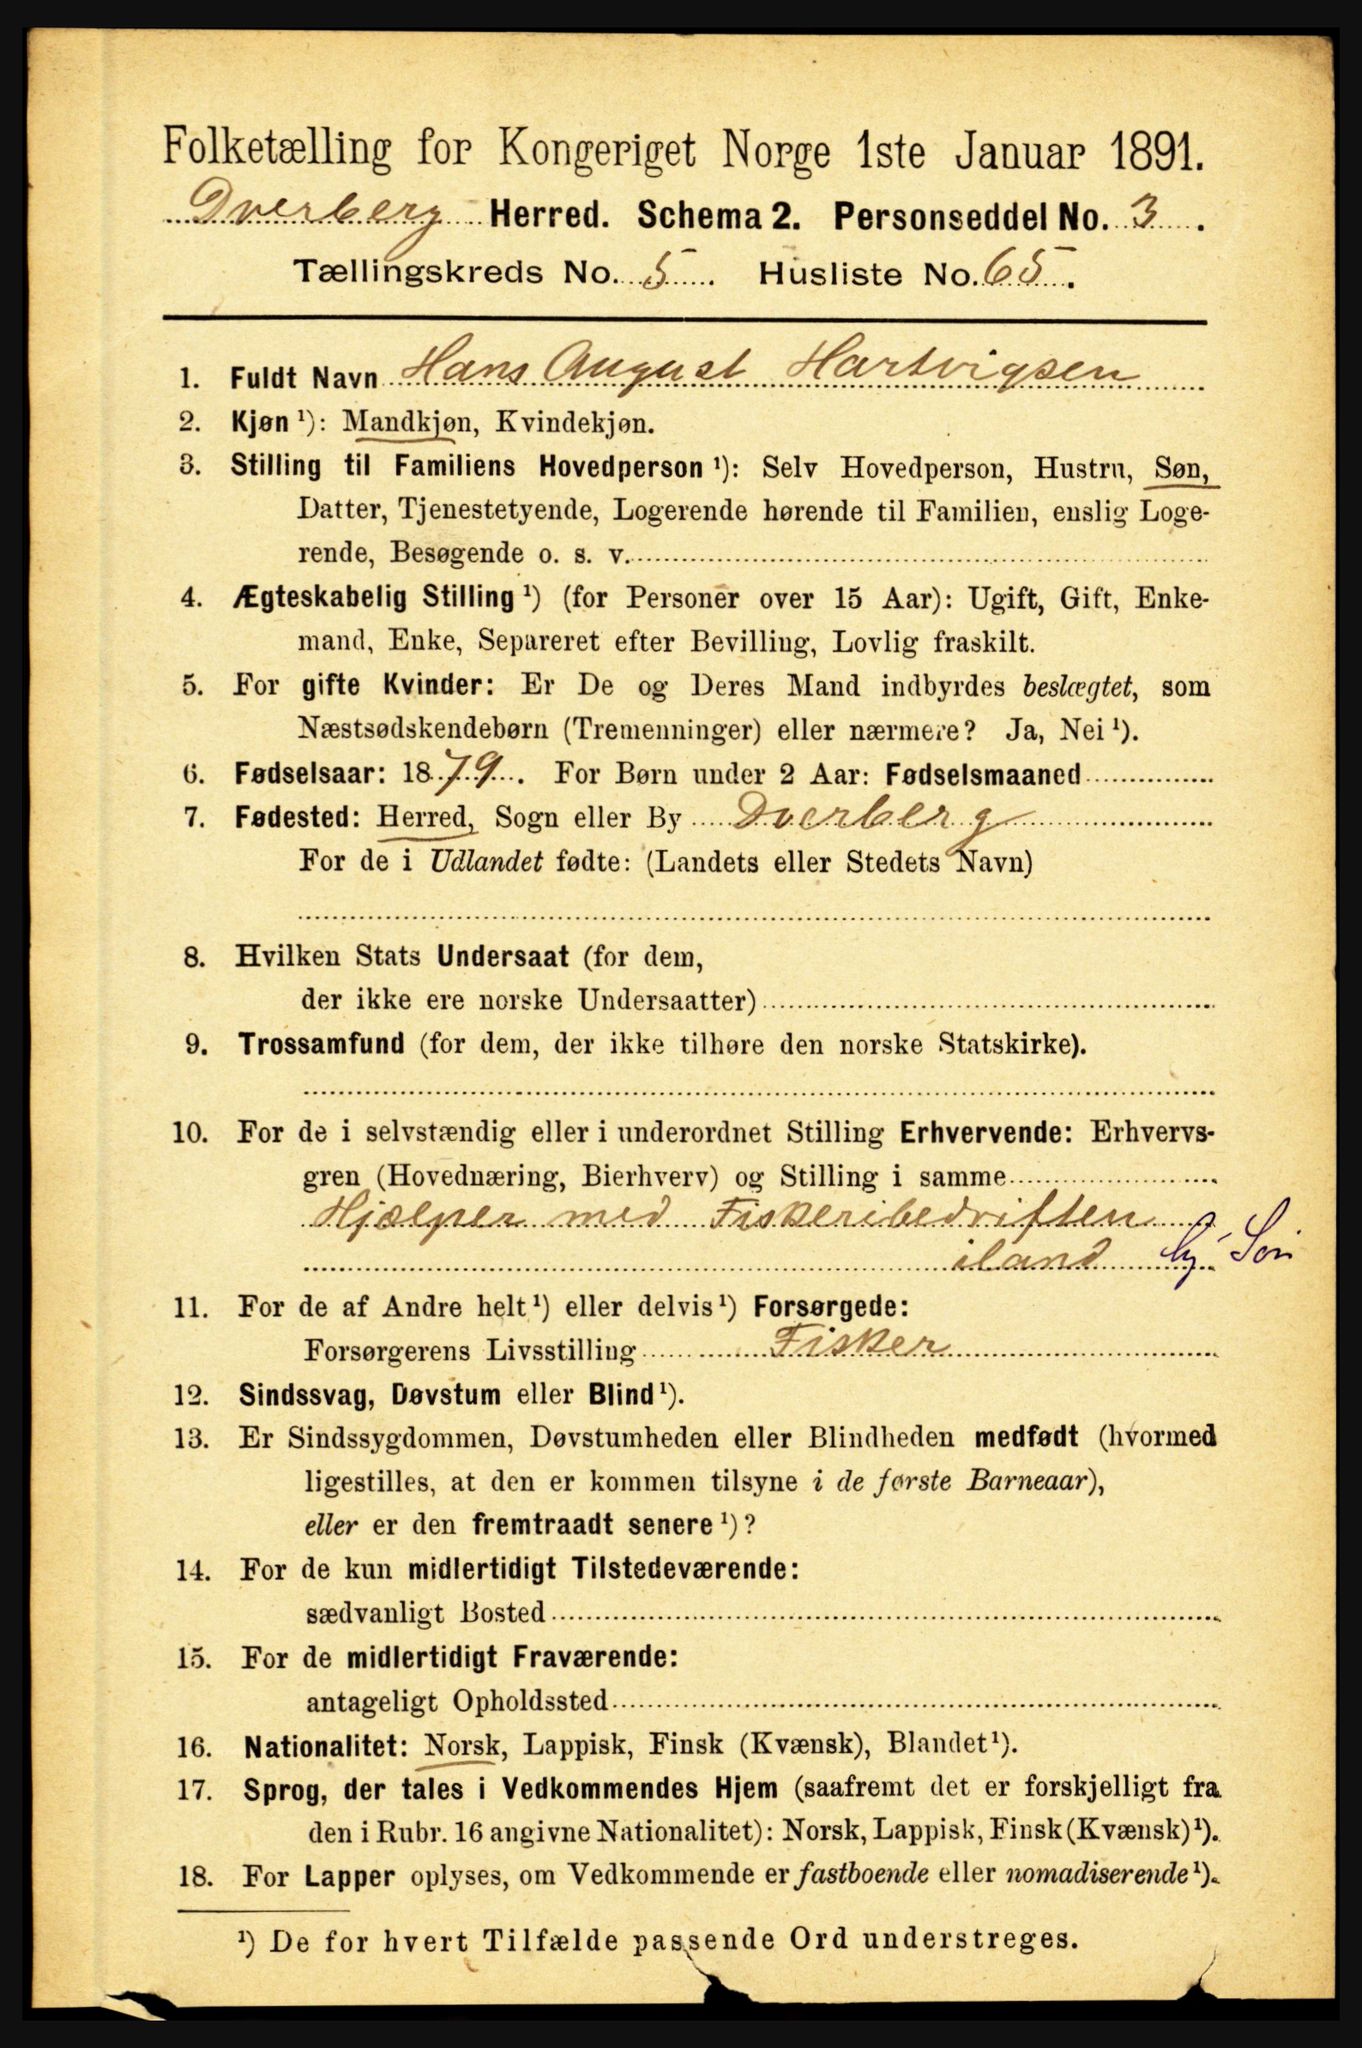 Folketælling for Kongeriget Norge 1ste Januar 1891.
Dverberg Herred. Schema 2. Personseddel No. 3.
Tællingskreds No. 5. Husliste No. 65.
1. Fuldt Navn Hans August Hartvigsen
2. Kjøn ¹): Mandkjøn, Kvindekjøn.
3. Stilling til Familiens Hovedperson ¹): Selv Hovedperson, Hustru, Søn,
Datter, Tjenestetyende, Logerende hørende til Familien, enslig Loge-
rende, Besøgende o. s. v.
4. Ægteskabelig Stilling ¹) (for Personer over 15 Aar): Ugift, Gift, Enke-
mand, Enke, Separeret efter Bevilling, Lovlig fraskilt.
5. For gifte Kvinder: Er De og Deres Mand indbyrdes beslægtet, som
Næstsødskendebørn (Tremenninger) eller nærmere? Ja, Nei ¹).
6. Fødselsaar: 1879. For Børn under 2 Aar: Fødselsmaaned
7. Fødested: Herred, Sogn eller By Dverberg
For de i Udlandet fødte: (Landets eller Stedets Navn)
8. Hvilken Stats Undersaat (for dem,
der ikke ere norske Undersaatter)
9. Trossamfund (for dem, der ikke tilhøre den norske Statskirke).
10. For de i selvstændig eller i underordnet Stilling Erhvervende: Erhvervs-
gren (Hovednæring, Bierhverv) og Stilling i samme
Hjælper med Fiskeribedriften
iland Søn
11. For de af Andre helt ¹) eller delvis ¹) Forsørgede:
Forsørgerens Livsstilling Fisker
12. Sindssvag, Døvstum eller Blind ¹).
13. Er Sindssygdommen, Døvstumheden eller Blindheden medfødt (hvormed
ligestilles, at den er kommen tilsyne i de første Barneaar),
eller er den fremtraadt senere ¹)?
14. For de kun midlertidigt Tilstedeværende:
sædvanligt Bosted
15. For de midlertidigt Fraværende:
antageligt Opholdssted
16. Nationalitet: Norsk, Lappisk, Finsk (Kvænsk), Blandet ¹).
17. Sprog, der tales i Vedkommendes Hjem (saafremt det er forskjelligt fra
den i Rubr. 16 angivne Nationalitet): Norsk, Lappisk, Finsk (Kvænsk) ¹).
18. For Lapper oplyses, om Vedkommende er fastboende eller nomadiserende ¹).
¹) De for hvert Tilfælde passende Ord understreges.